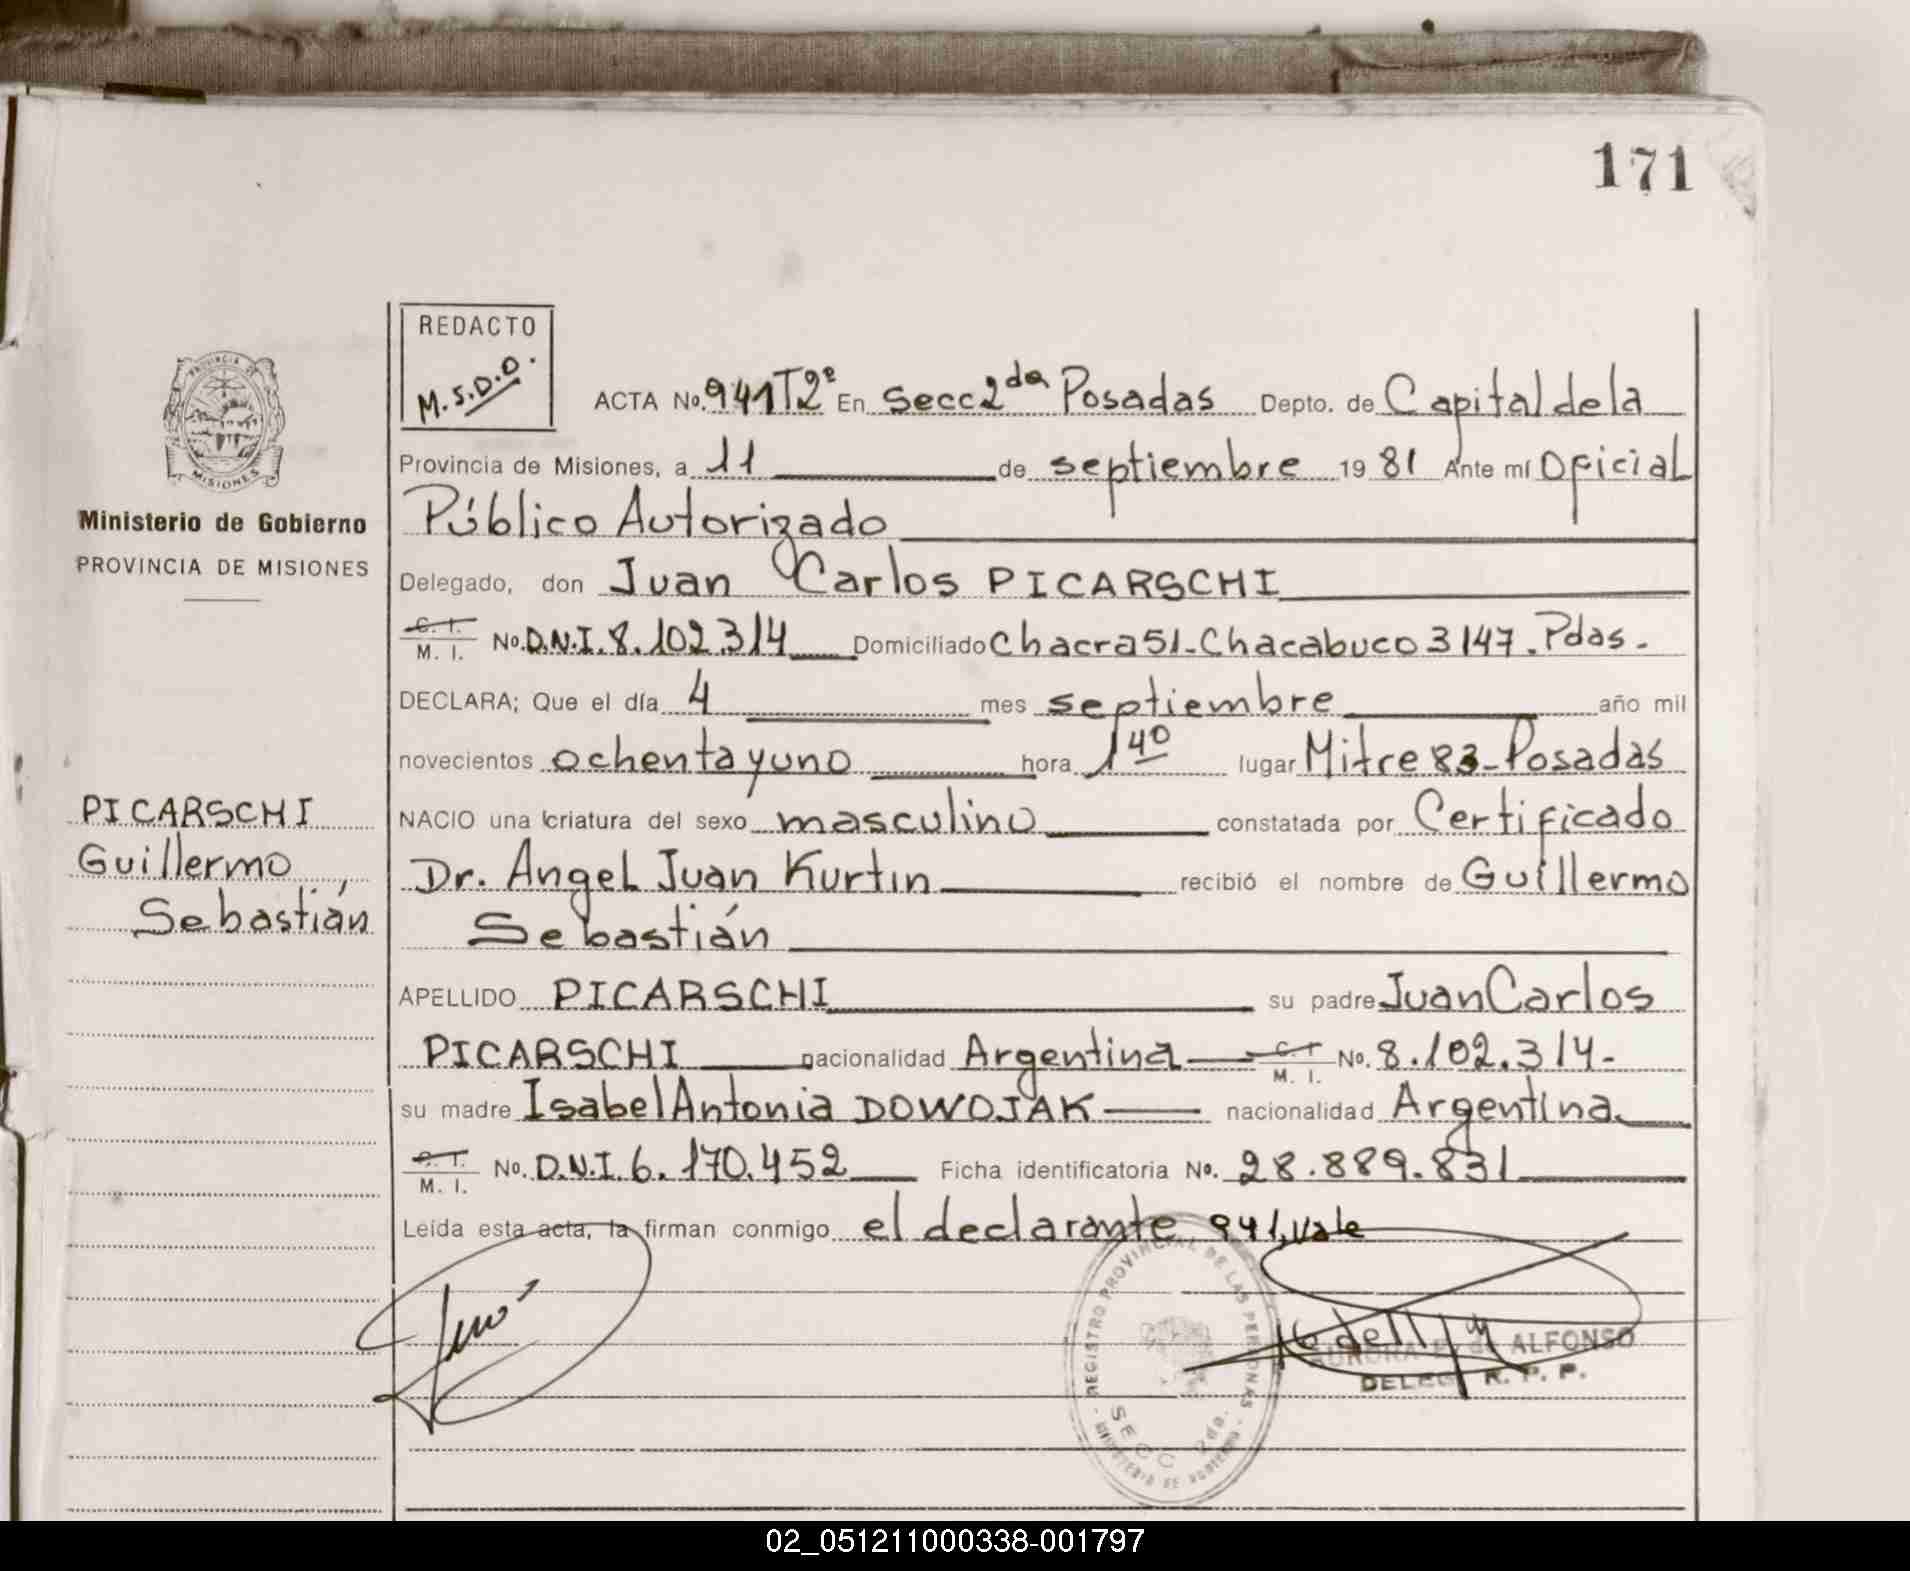 171
REDACTO
M.S.D.O.
ACTA No. 941T2º En Secc 2da Posadas Depto. de Capital de la
Provincia de Misiones, a 11 de septiembre 1981 Ante mí Oficial
Público Autorizado
Delegado, don Juan Carlos PICARSCHI
C. I. M. I. No. D.N.I. 8.102.314 Domiciliado Chacra 51-Chacabuco 3147. Pdas.
DECLARA; Que el día 4 mes septiembre año mil
novecientos ochenta y uno hora 1 40 lugar Mitre 83-Posadas
NACIO una criatura del sexo masculino constatada por Certificado
Dr. Angel Juan Kurtin recibió el nombre de Guillermo
Sebastián
APELLIDO PICARSCHI su padre Juan Carlos
PICARSCHI nacionalidad Argentina C. I. M. I. No. 8.102.314-
su madre Isabel Antonia DOWOJAK nacionalidad Argentina
C. I. M. I. No. D.N.I. 6.170.452 Ficha identificatoria No. 28.889.831
Leída esta acta, la firman conmigo el declarante 941, vale
PROVINCIA DE
MISIONES
Ministerio de Gobierno
PROVINCIA DE MISIONES
PICARSCHI
Guillermo
Sebastián
REGISTRO PROVINCIAL DE LAS PERSONAS
SECC 2da.
MINISTERIO DE GOBIERNO
AURORA de ALFONSO
DELEG. R. P. P.
02_051211000338-001797